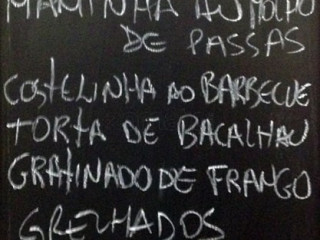 MAMINHA AO MOLHO
DE PASSAS
COSTELINHA AO BARBECUE
TORTA DE BACALHAU
GRATINADO DE FRANGO
GRELHADOS